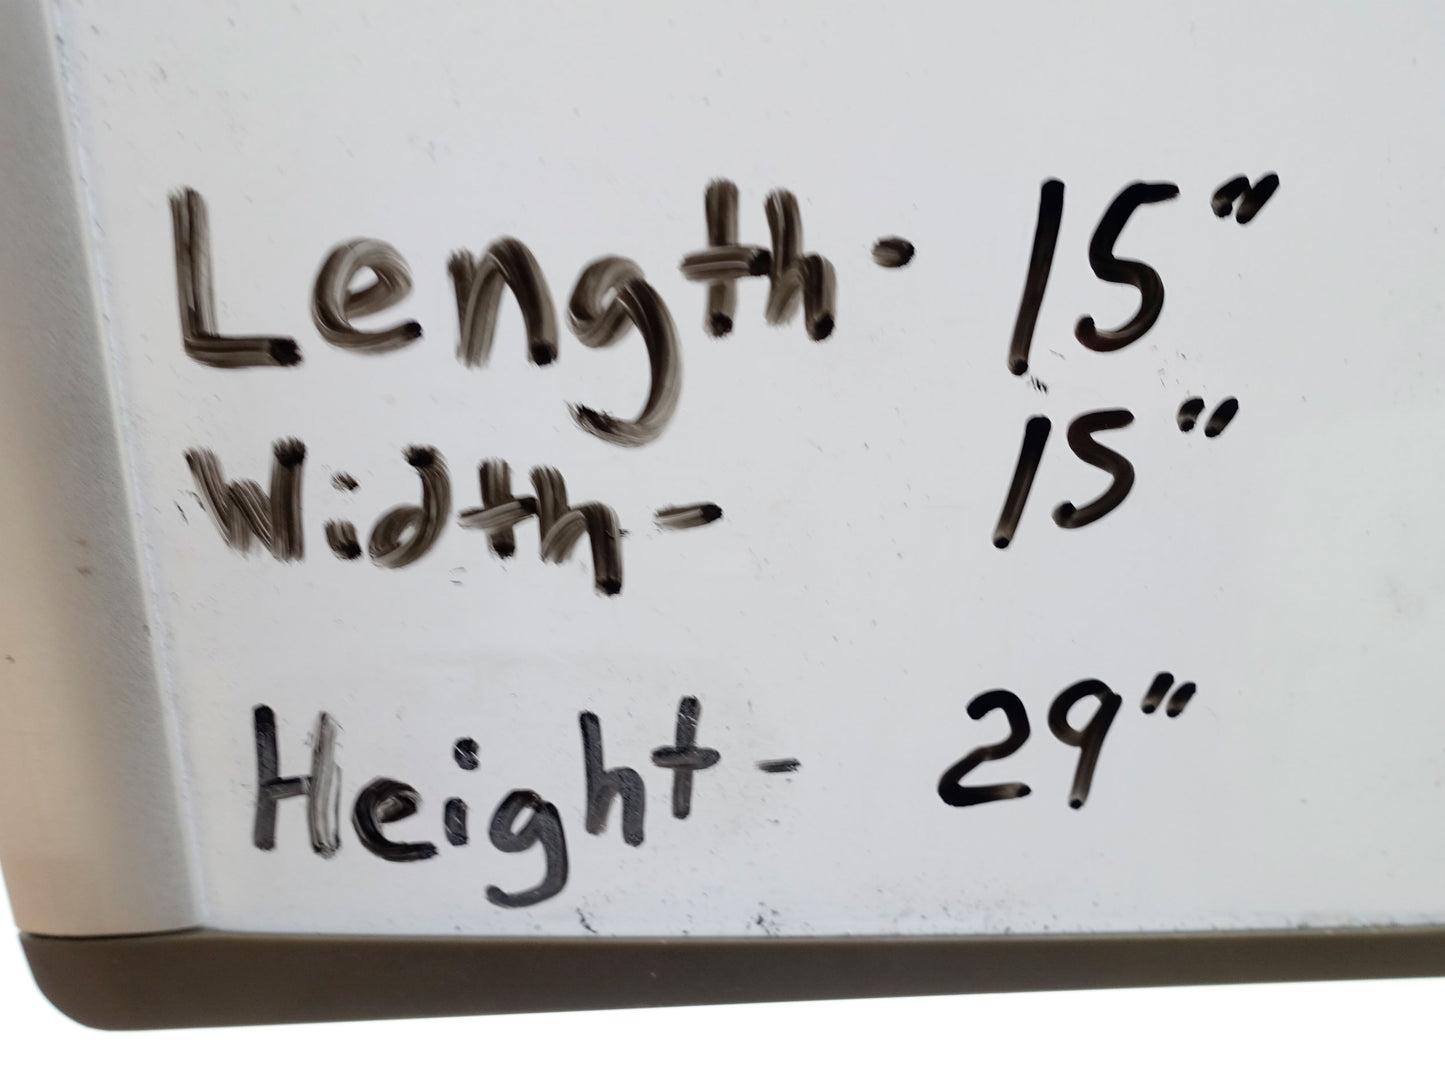 Length- 15"
Width- 15"
Height- 29"